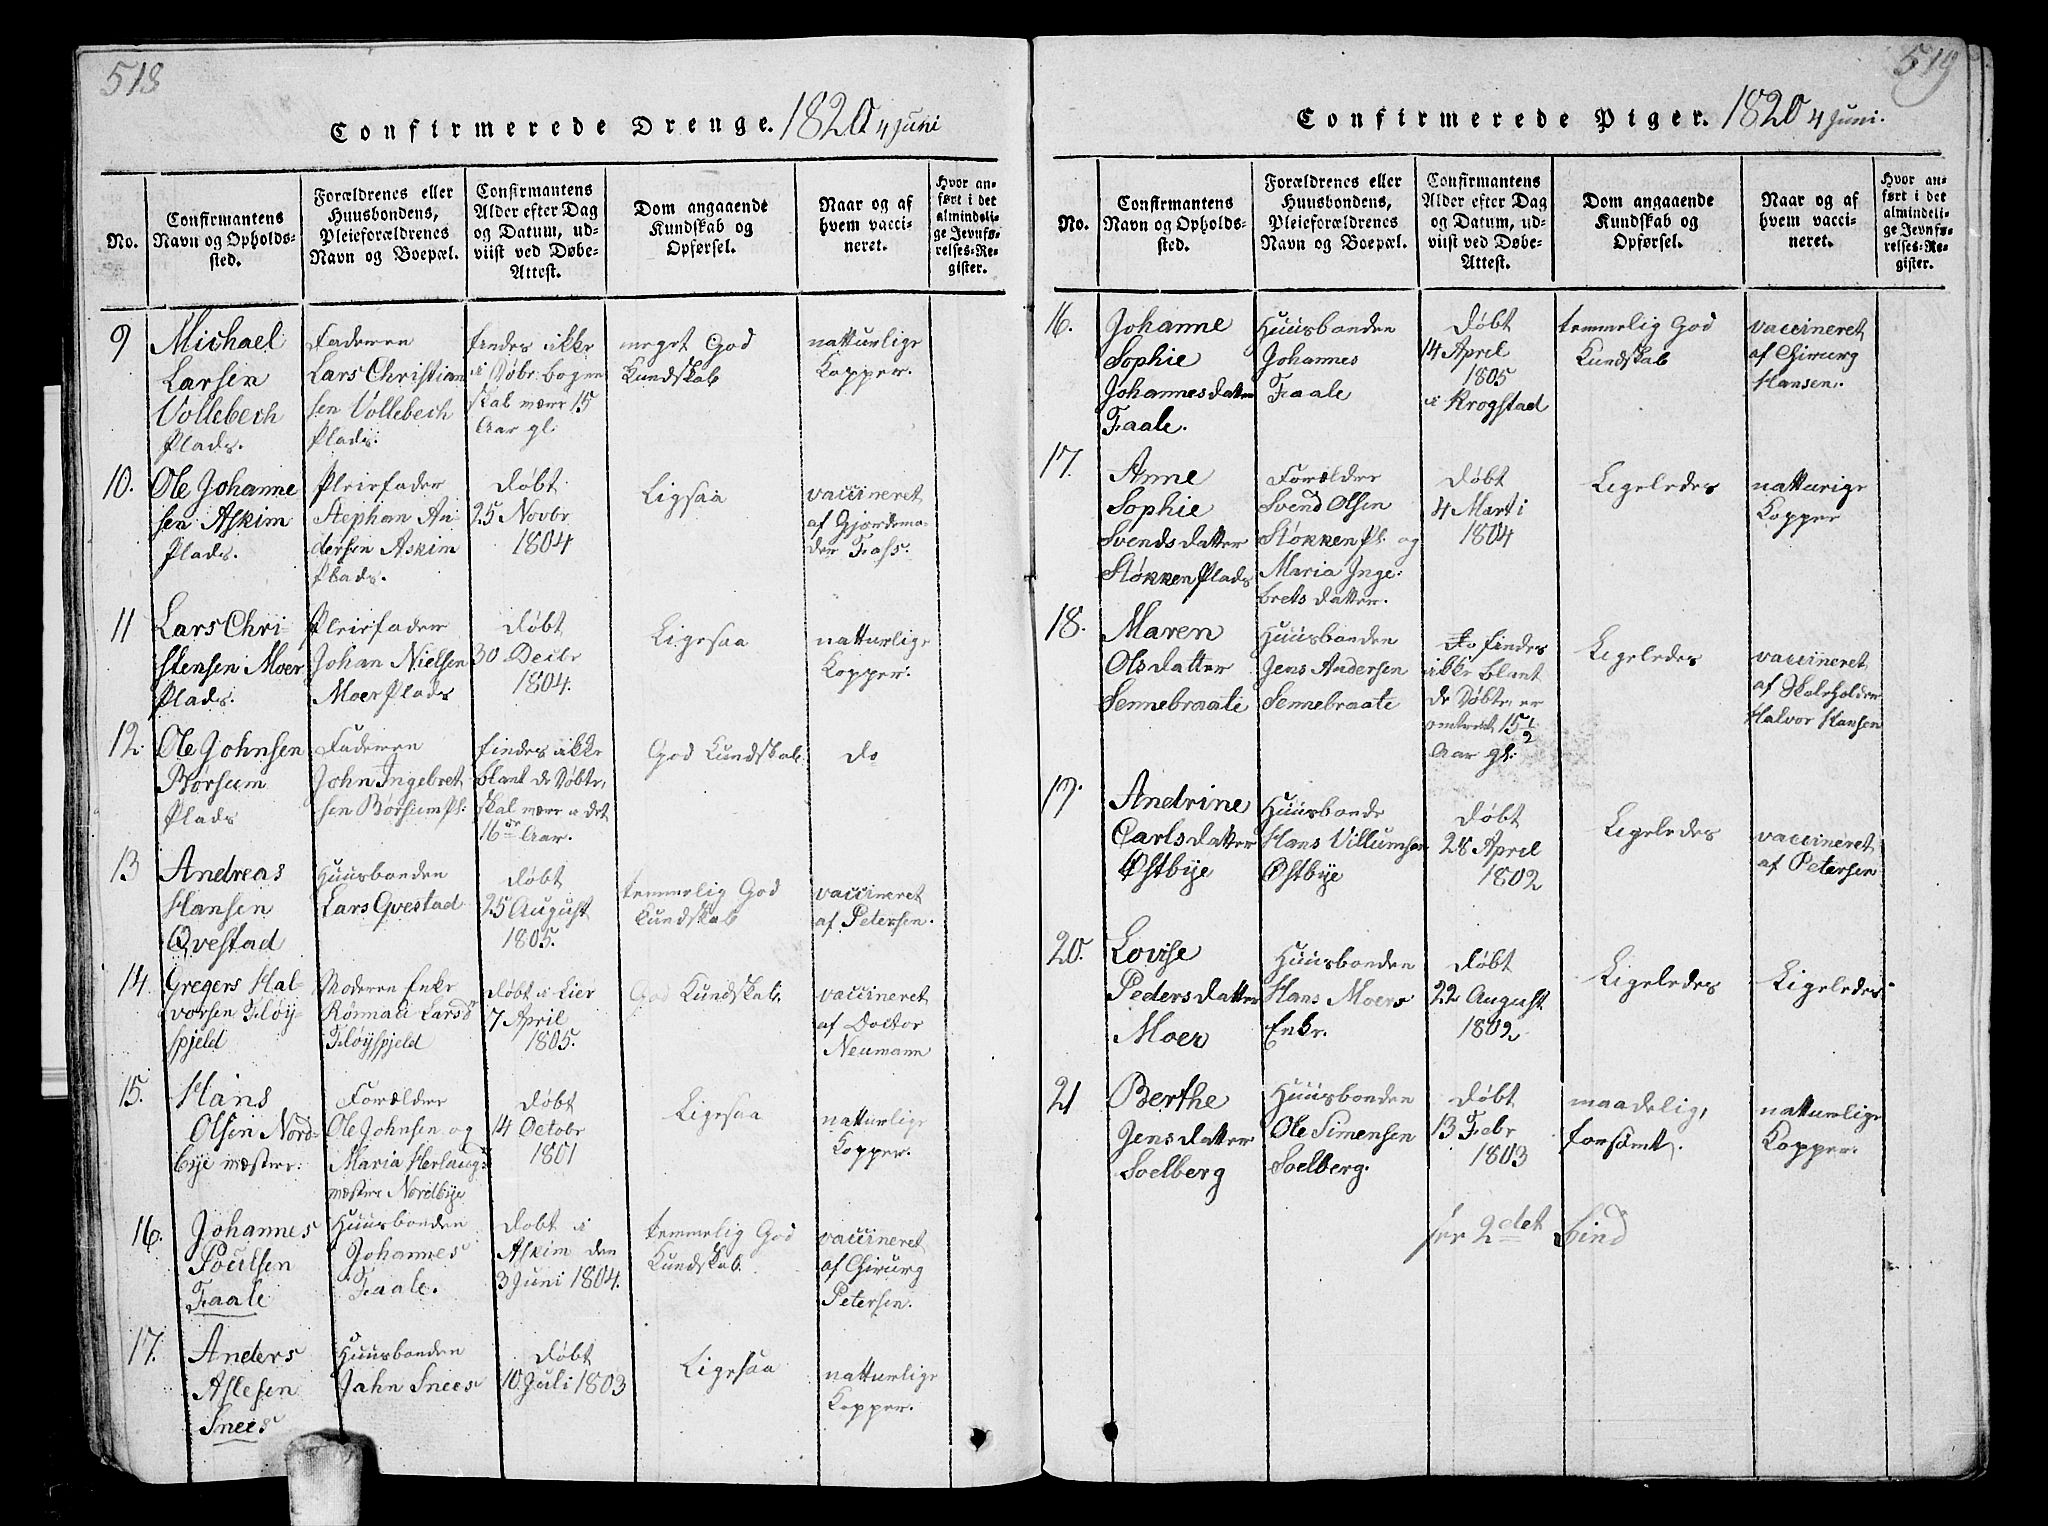 518
Confirmerede Drenge. 1820 4 Juni
No.
Confirmantens
Navn og Opholds-
sted.
Forældrenes eller
Huusbondens,
Pleieforældrenes
Navn og Boepæl.
Confirmantens
Alder efter Dag
og Datum, ud-
viist ved Døbe-
Attest.
Dom angaaende
Kundskab og
Opførsel.
Naar og af
hvem vacci-
neret.
Hvor an-
ført i det
almindeli-
ge Jevnfø-
relses-Re-
gister.
9
Michael
Larsen
Vollebech
Plads.
Faderen
Lars Christian
sen Vollebech
Plads.
findes ikke
i Døbr. bogen
skal være 15
Aar gl.
meget God
Kundskab
natturlige
Kopper.
10.
Ole Johanne
sen Askim
Plads.
Pleiefader
Stephan An
dersen Askim
Plads.
Døbt
25 Novbr
1804
Ligsaa
vaccineret
af Gjordemo
der Fass.
11
Lars Chri-
stensen Moer
Plads.
Pleiefader
Johan Nielsen
Moer Plads
Døbt
30 Decbr
1804.
Ligesaa
natturlige
Kopper.
12.
Ole Johnsen
Børsum
Plads
Faderen
John Ingebret
sen Børsum Pl.
findes ikke
blant de Døbte,
skal være i det
16de Aar.
God Kundskab
do
13
Andreas
Hansen
Qvestad
Huusbonden
Lars Qvestad
Døbt
25 August
1805.
temmelig God
Kundskab
vaccineret
af Petersen.
14.
Gregers Hal-
vorsen Fløy-
spjeld
Moderen Enke
Rönnau Larsd
Fløyspjeld
Døbt i Lier
7 April
1805.
God Kundskab.
vaccineret
af Doctor
Neumann
15.
Hans
Olsen Nord-
bye mæstre:
Forælder
Ole Johnsen og
Maria Herlaug
mæstre Nordbye
Døbt
14 Octobr
1801
Ligesaa
natturlige
Kopper.
16.
Johannes
Poulsen
Faale
Huusbonden
Johannes
Faale.
Døbt i
Askim den
3 Juni 1804.
temmelig God
Kundskab.
vaccineret
af Chirurg
Petersen.
17.
Anders
Aslesen
Snees
Huusbonden
Jahn Snees
Døbt
10 Juli 1803
Ligesaa
natturlige
Kopper.
519
Confirmerede Piger. 1820 4 Juni.
No.
Confirmantens
Navn og Opholds-
sted.
Forældrenes eller
Huusbondens,
Pleieforældrenes
Navn og Boepæl.
Confirmantens
Alder efter Dag
og Datum, ud-
viist ved Døbe-
Attest.
Dom angaaende
Kundskab og
Opførsel.
Naar og af
hvem vacci-
neret.
Hvor an-
ført i det
almindeli-
ge Jevnfø-
relses-Re-
gister.
16.
Johanne
Sophie
Johannesdatter
Faale.
Huusbonden
Johannes
Faale
Døbt
14 April
1805
i Krogstad
temmelig God
Kundskab
vaccineret
af Chirurg
Hansen.
17.
Anne
Sophie
Svendsdatter
Støkken Plads
Forælder
Svend Olsen
Støkken Pl. og
Maria Inge:
bretsdatter.
Døbt
4 Marti
1804
Ligeledes
natturige
Kopper
18.
Maren
Olsdatter
Sennebraate
Huusbonden
Jens Andersen
Sennebraate
findes
ikke blant
de Døbte, er
omtrent 15 1/2
Aar gl.
Ligeledes
vaccineret
af Skoleholder
Halvor Hansen
19.
Andrine
Carlsdatter
Østbye
Huusbonde
Hans Villumsen
Østbye
Døbt
28 April
1802
Ligeledes
vaccineret
af Petersen
20.
Lovise
Pedersdatter
Moer
Huusbonden
Hans Moers
Enke.
Døbt
22 August
1802
Ligeledes
Ligeledes
21
Berthe
Jensdatter
Soelberg
Huusbonden
Ole Simensen
Soelberg.
Døbt
13 Febr
1803
maadelig,
forsömt.
natturlige
Kopper.
see 2det Bind